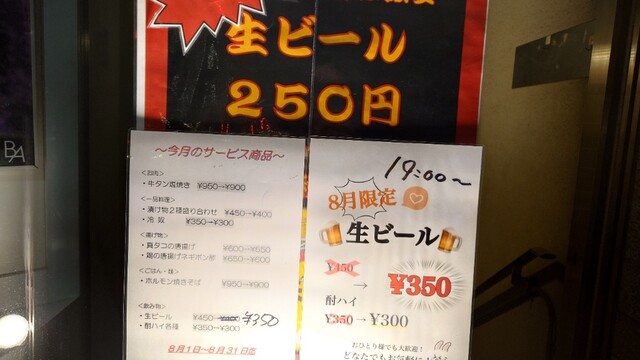 生ビール
250円
BA
~今月のサービス商品~
<お肉>
・牛タン塩焼き ¥950→¥900
<一品料理>
・漬け物2種盛り合わせ ¥450→¥400
・冷奴 ¥350→¥300
<揚げ物>
・真タコの唐揚げ ¥600→¥550
・鶏の唐揚げネギポン酢 ¥650→¥600
<ごはん・麺>
・ホルモン焼きそば ¥950→¥900
<飲み物>
・生ビール ¥450→¥400 ¥350
・酎ハイ各種 ¥350→¥300
8月1日~8月31日迄
19:00~
8月限定
生ビール
¥450
→ ¥350
酎ハイ
¥350→¥300
おひとり様でも大歓迎!
どなたでもお気軽に